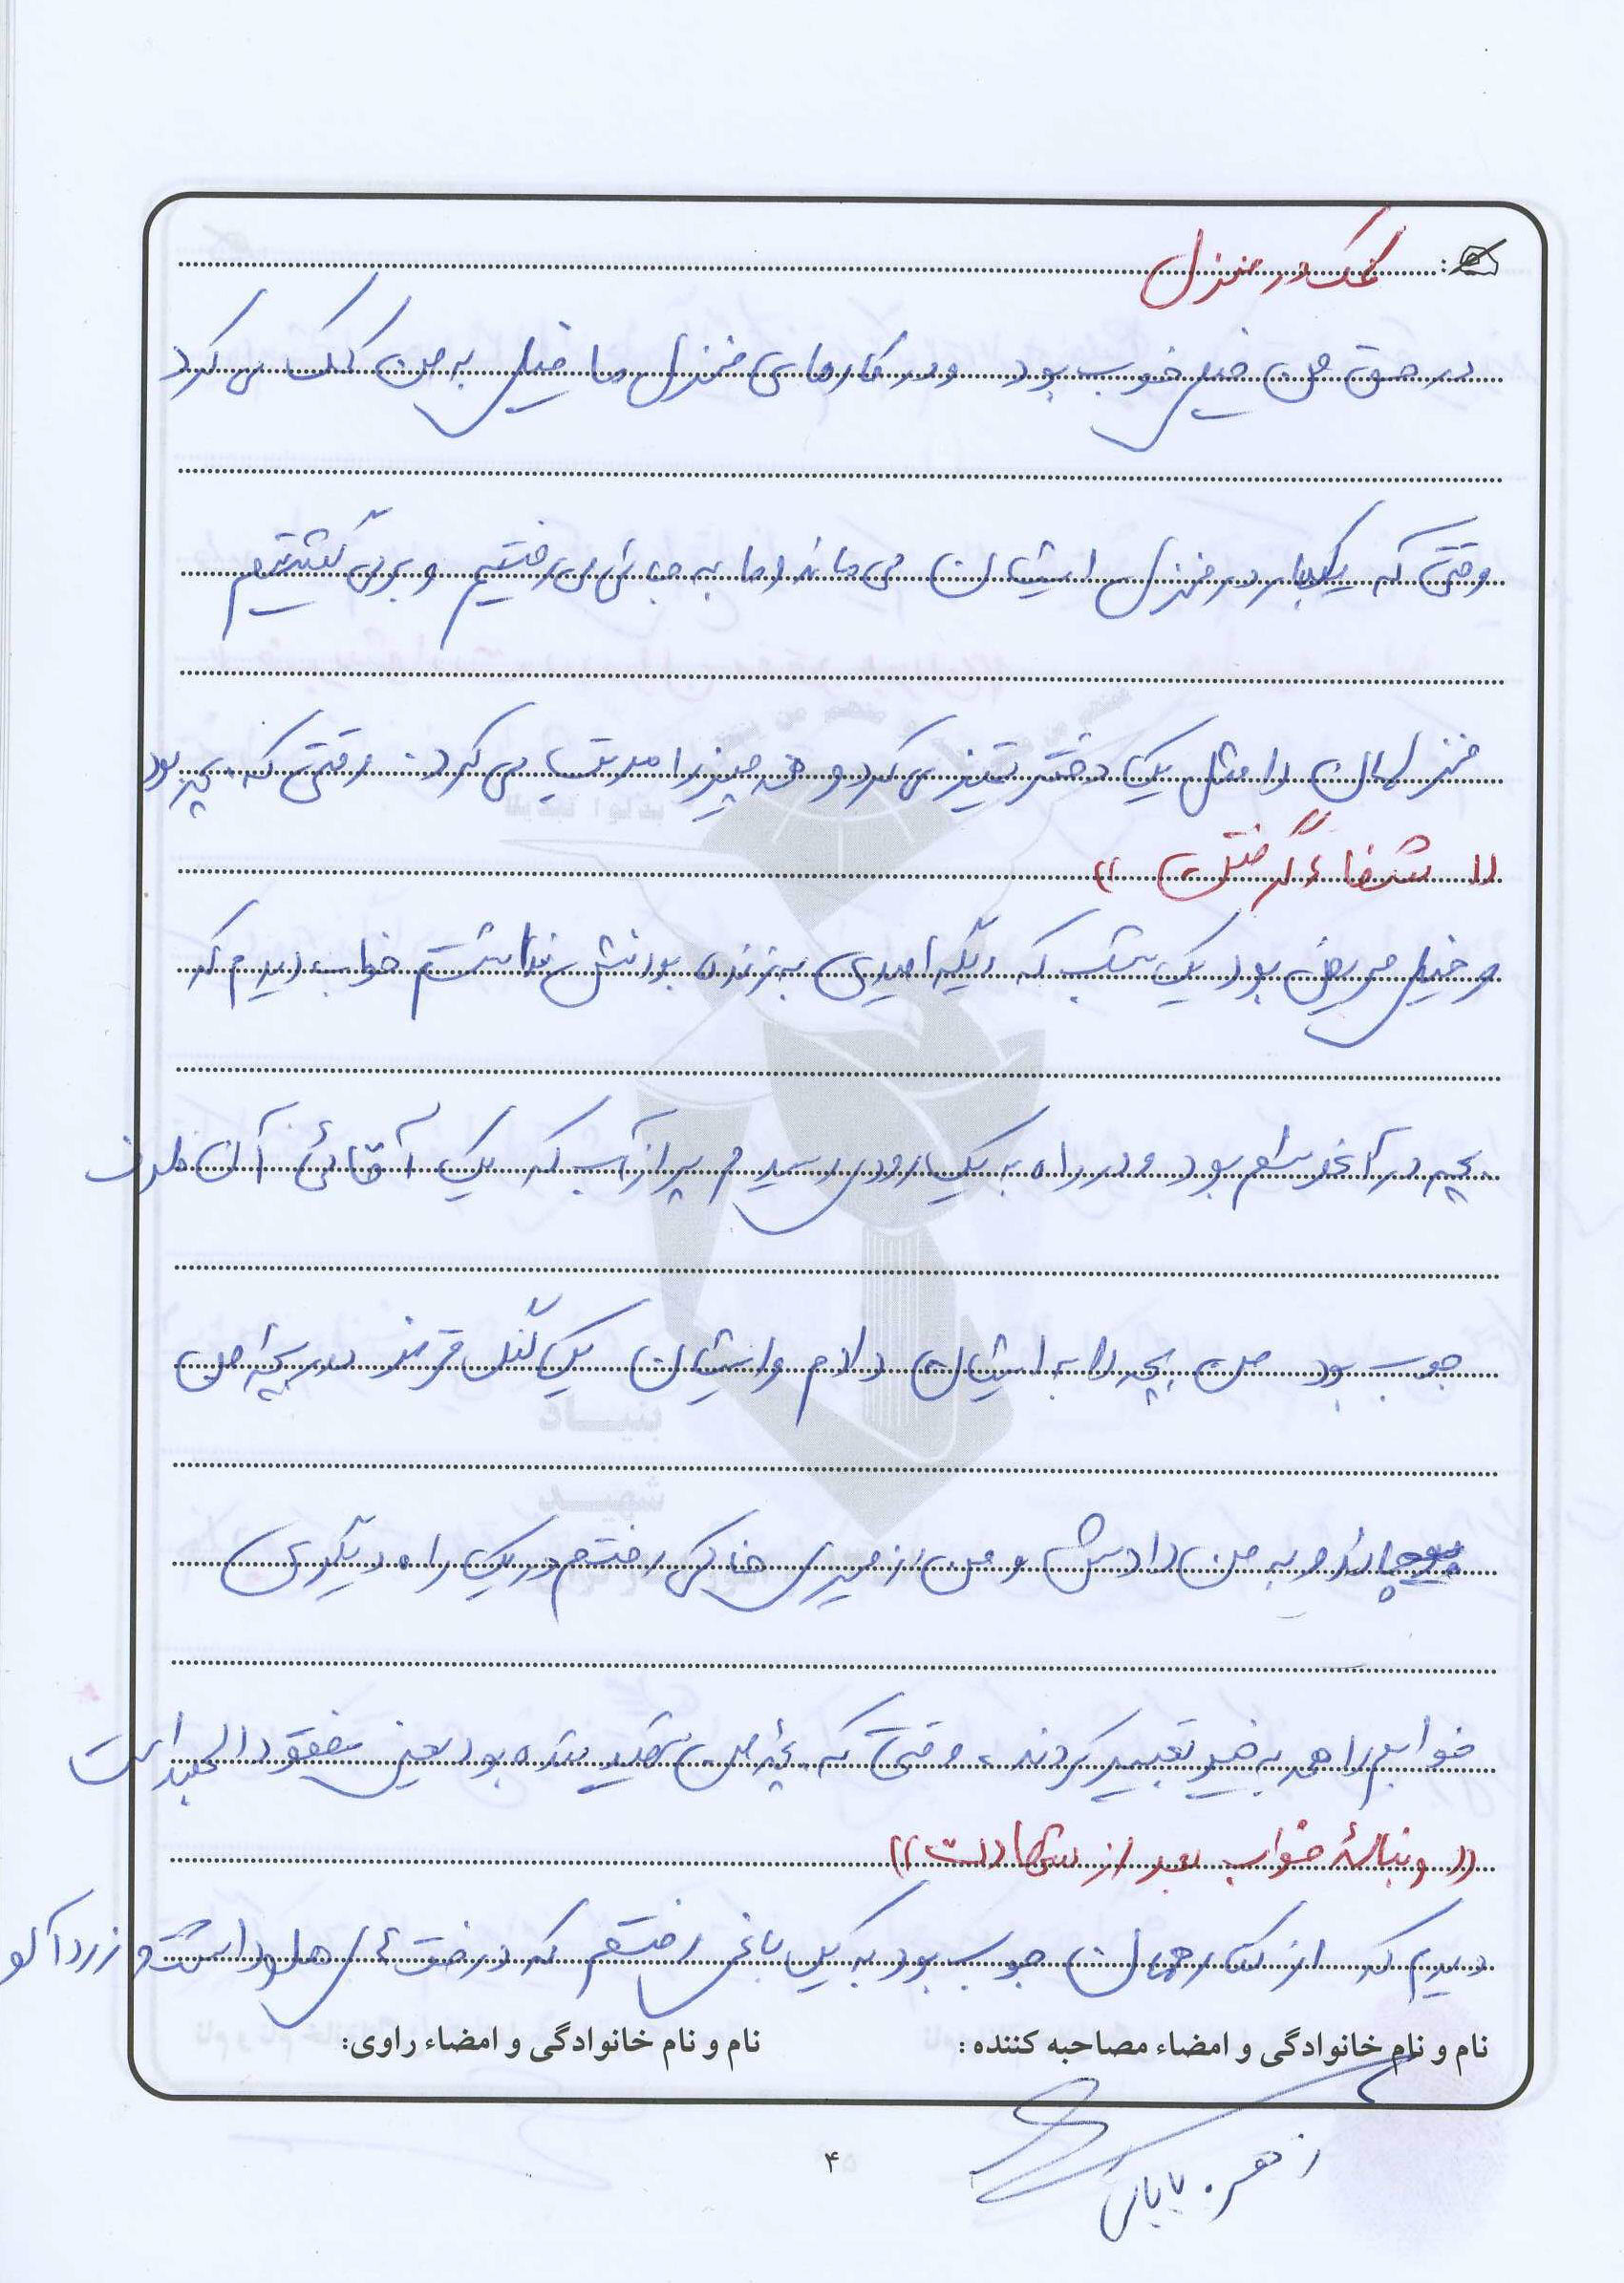 کمک در منزل
در حق من خیلی خوب بود و در کارهای منزل ما خیلی به من کمک می کرد
وقتی که یکبار در منزل ایشان می ماند و ما به جائی می رفتیم و برمی گشتیم
منزلمان را مثل یک دختر تمیز می کرد و همه چیز را مرتب می کرد. وقتی که بچه بود
(( شفاء گرفتن ))
و خیلی مریض بود یک شب که دیگه امیدی به زنده بودنش نداشتم خواب دیدم که
بچه در آغوشم بود و در راه به یک رودی رسیدم پر از آب که یک آقائی آن طرف
جوب بود من بچه را به ایشان دادم و ایشان یک گل قرمز در بچه من
و به من دادش و من از مسیری خاکی رفتم در یک راه دیگری
خوابم را همه به خیر تعبیر کردند، وقتی که بچه من شهید شده بود یعنی مفقود الجسد است
(( دنبالهٔ خواب بعد از شهادت ))
دیدم که از کنار همان جوب بود به یک باغی رفتم که درخت های هلو داشت و زردآلو
نام و نام خانوادگی و امضاء مصاحبه کننده :
نام و نام خانوادگی و امضاء راوی:
زهره بابائی
۴